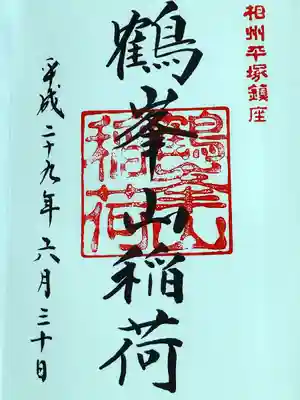 相州平塚鎮座
鶴峯山稲荷
鶴峯山稲荷
平成二十九年六月三十日